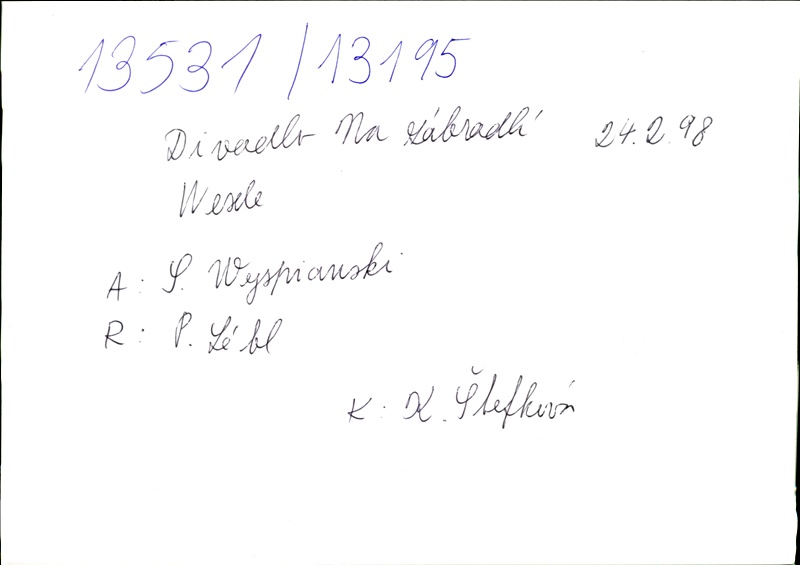 13531/13195
Divadlo Na zábradlí 24.2.98
Wesele
A: S. Wyspianski
R: P. Lébl
K: K. Štefková